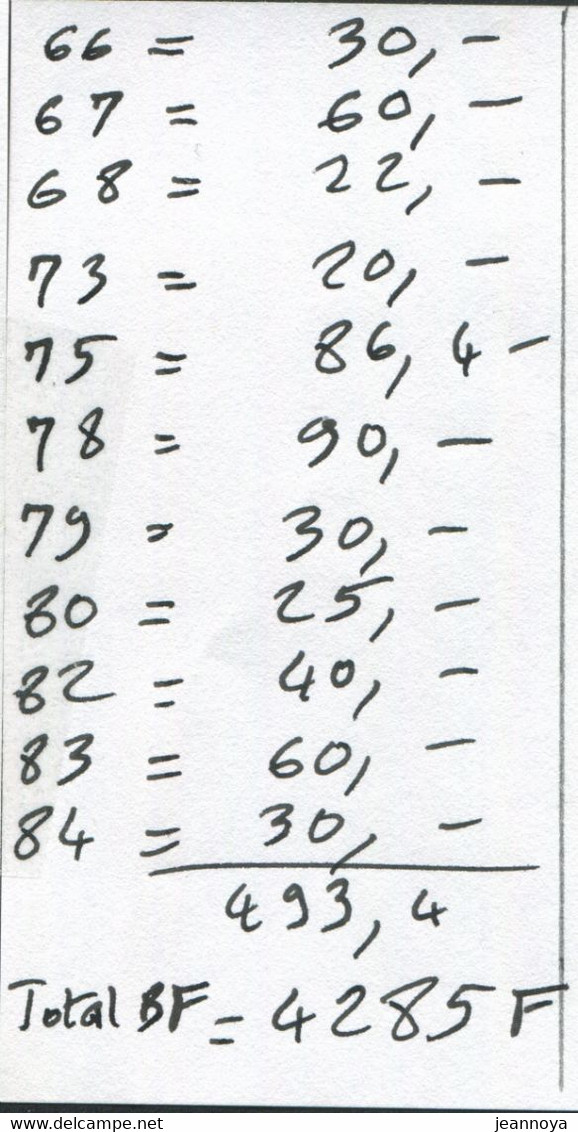 66 = 30,-
67 = 60,-
68 = 22,-
73 = 20,-
75 = 86,4-
78 = 90,-
79 = 30,-
80 = 25,-
82 = 40,-
83 = 60,-
84 = 30,-
493,4
Total BF = 4285 F
www.delcampe.net
jeannoya